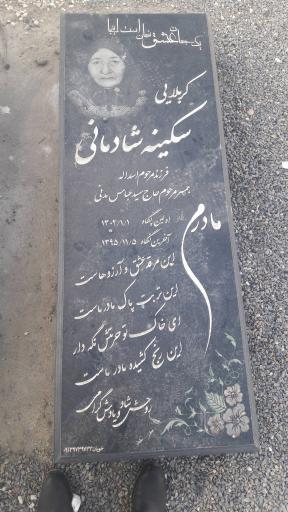 یک جهان عشق نهان است اینجا
کربلایی
سکینه شادمانی
فرزند مرحوم اسداله
همسر مرحوم حاج سیدعباس مدنی
اولین نگاه ۱۳۰۲/۱/۱
آخرین نگاه ۱۳۹۵/۱۱/۵
مادرم
این مرقد عشق و آرزوهاست
این تربت پاک مادر ماست
ای خاک تو حرمتش نگه دار
این رنج کشیده مادر ماست
روحش شاد و یادش گرامی